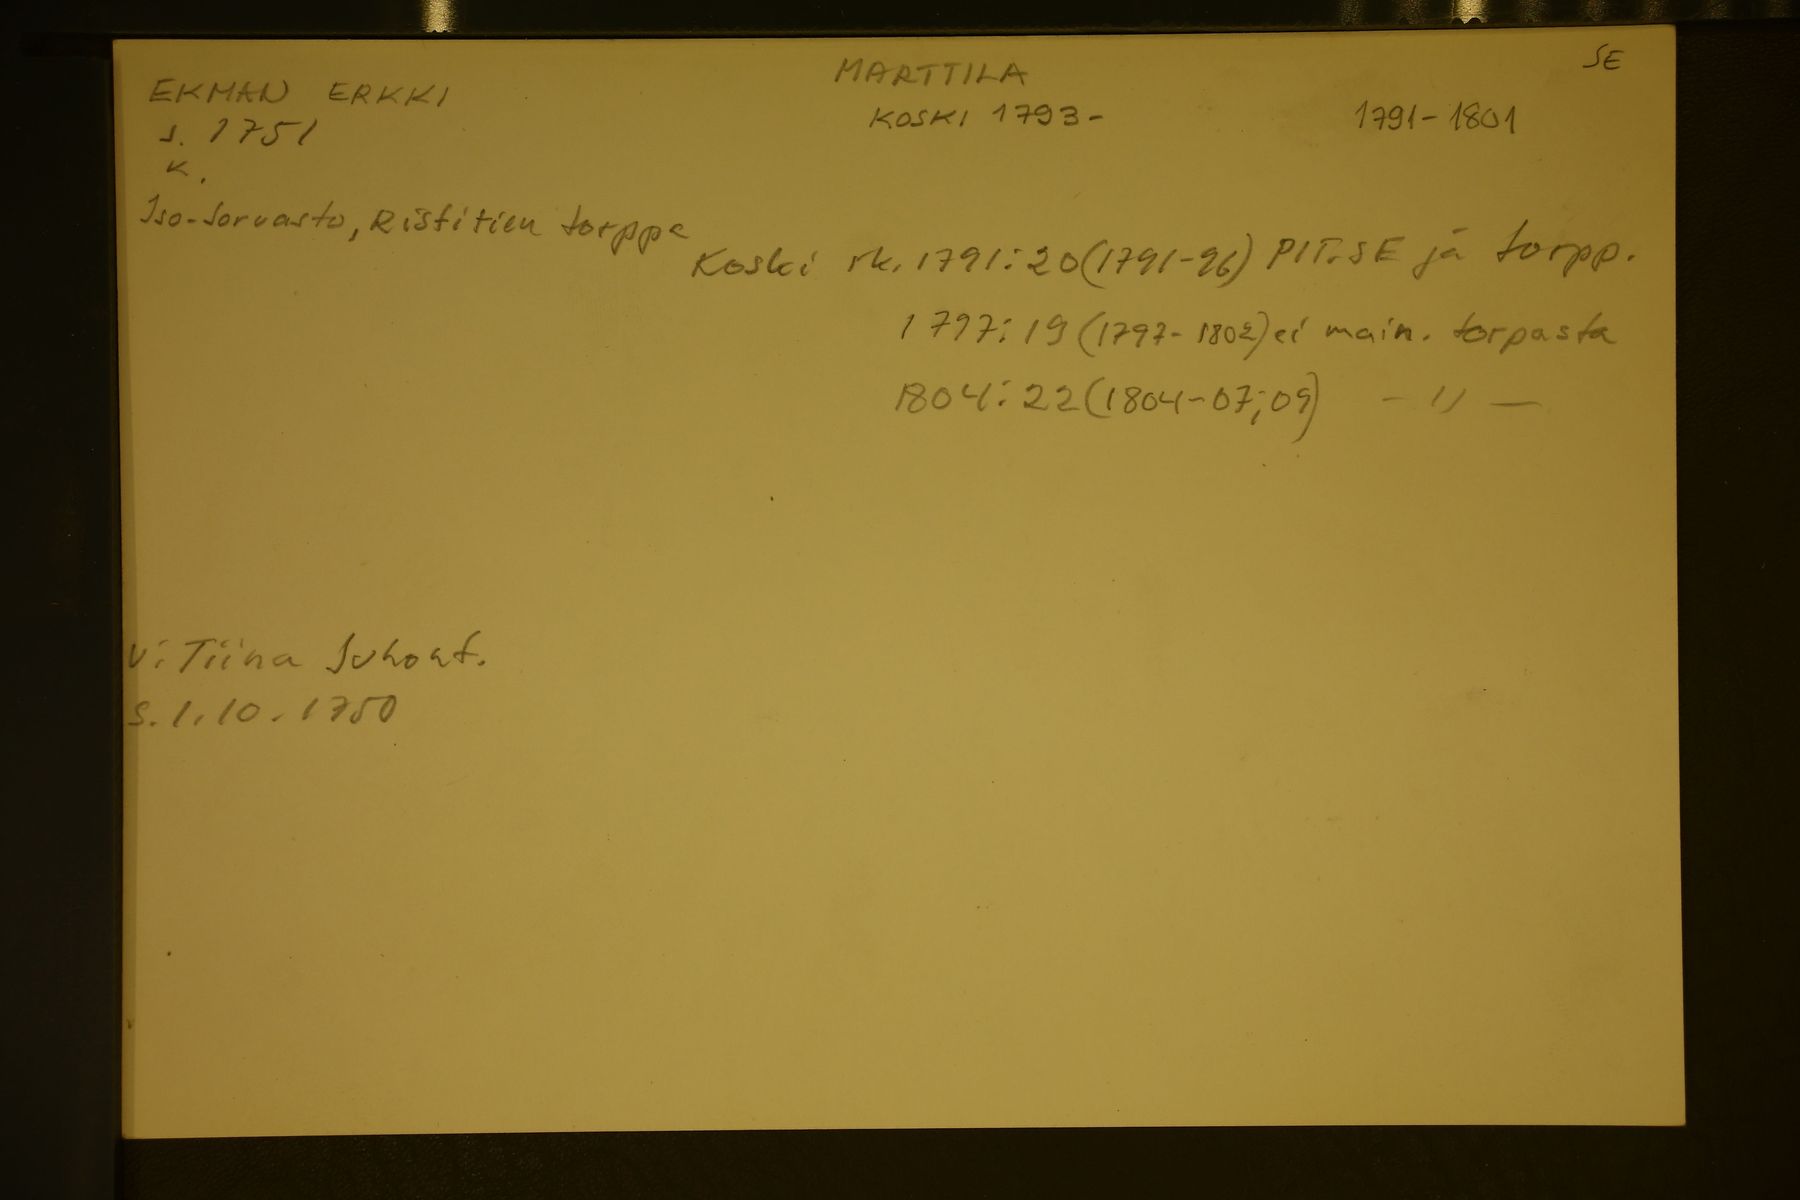 SE
MARTTILA
EKMAN ERKKI
KOSKI 1793-
1791-1801
s. 1751
K.
Iso-Sorvasto, Ristitien torppa
Koski rk. 1791:20 (1791-96) PIT.SE ja torpp.
1797:19 (1797-1802) ei main. torpasta
1804:22 (1804-07;09) - " -
V: Tiina Juhont.
s. 1.10.1750